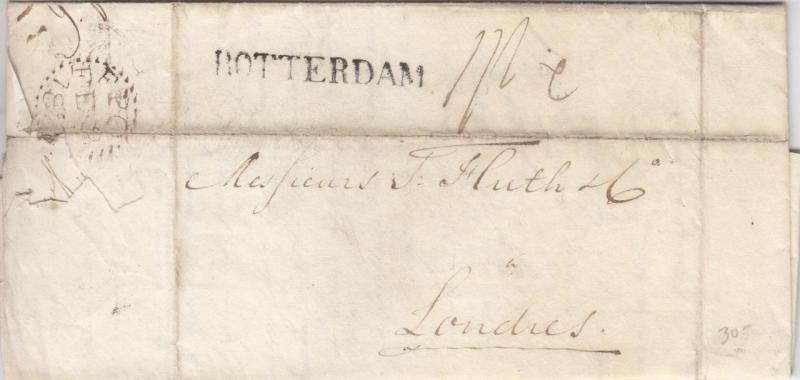 ROTTERDAM
Messieurs F. Fluth & Co
a
Londres.
30